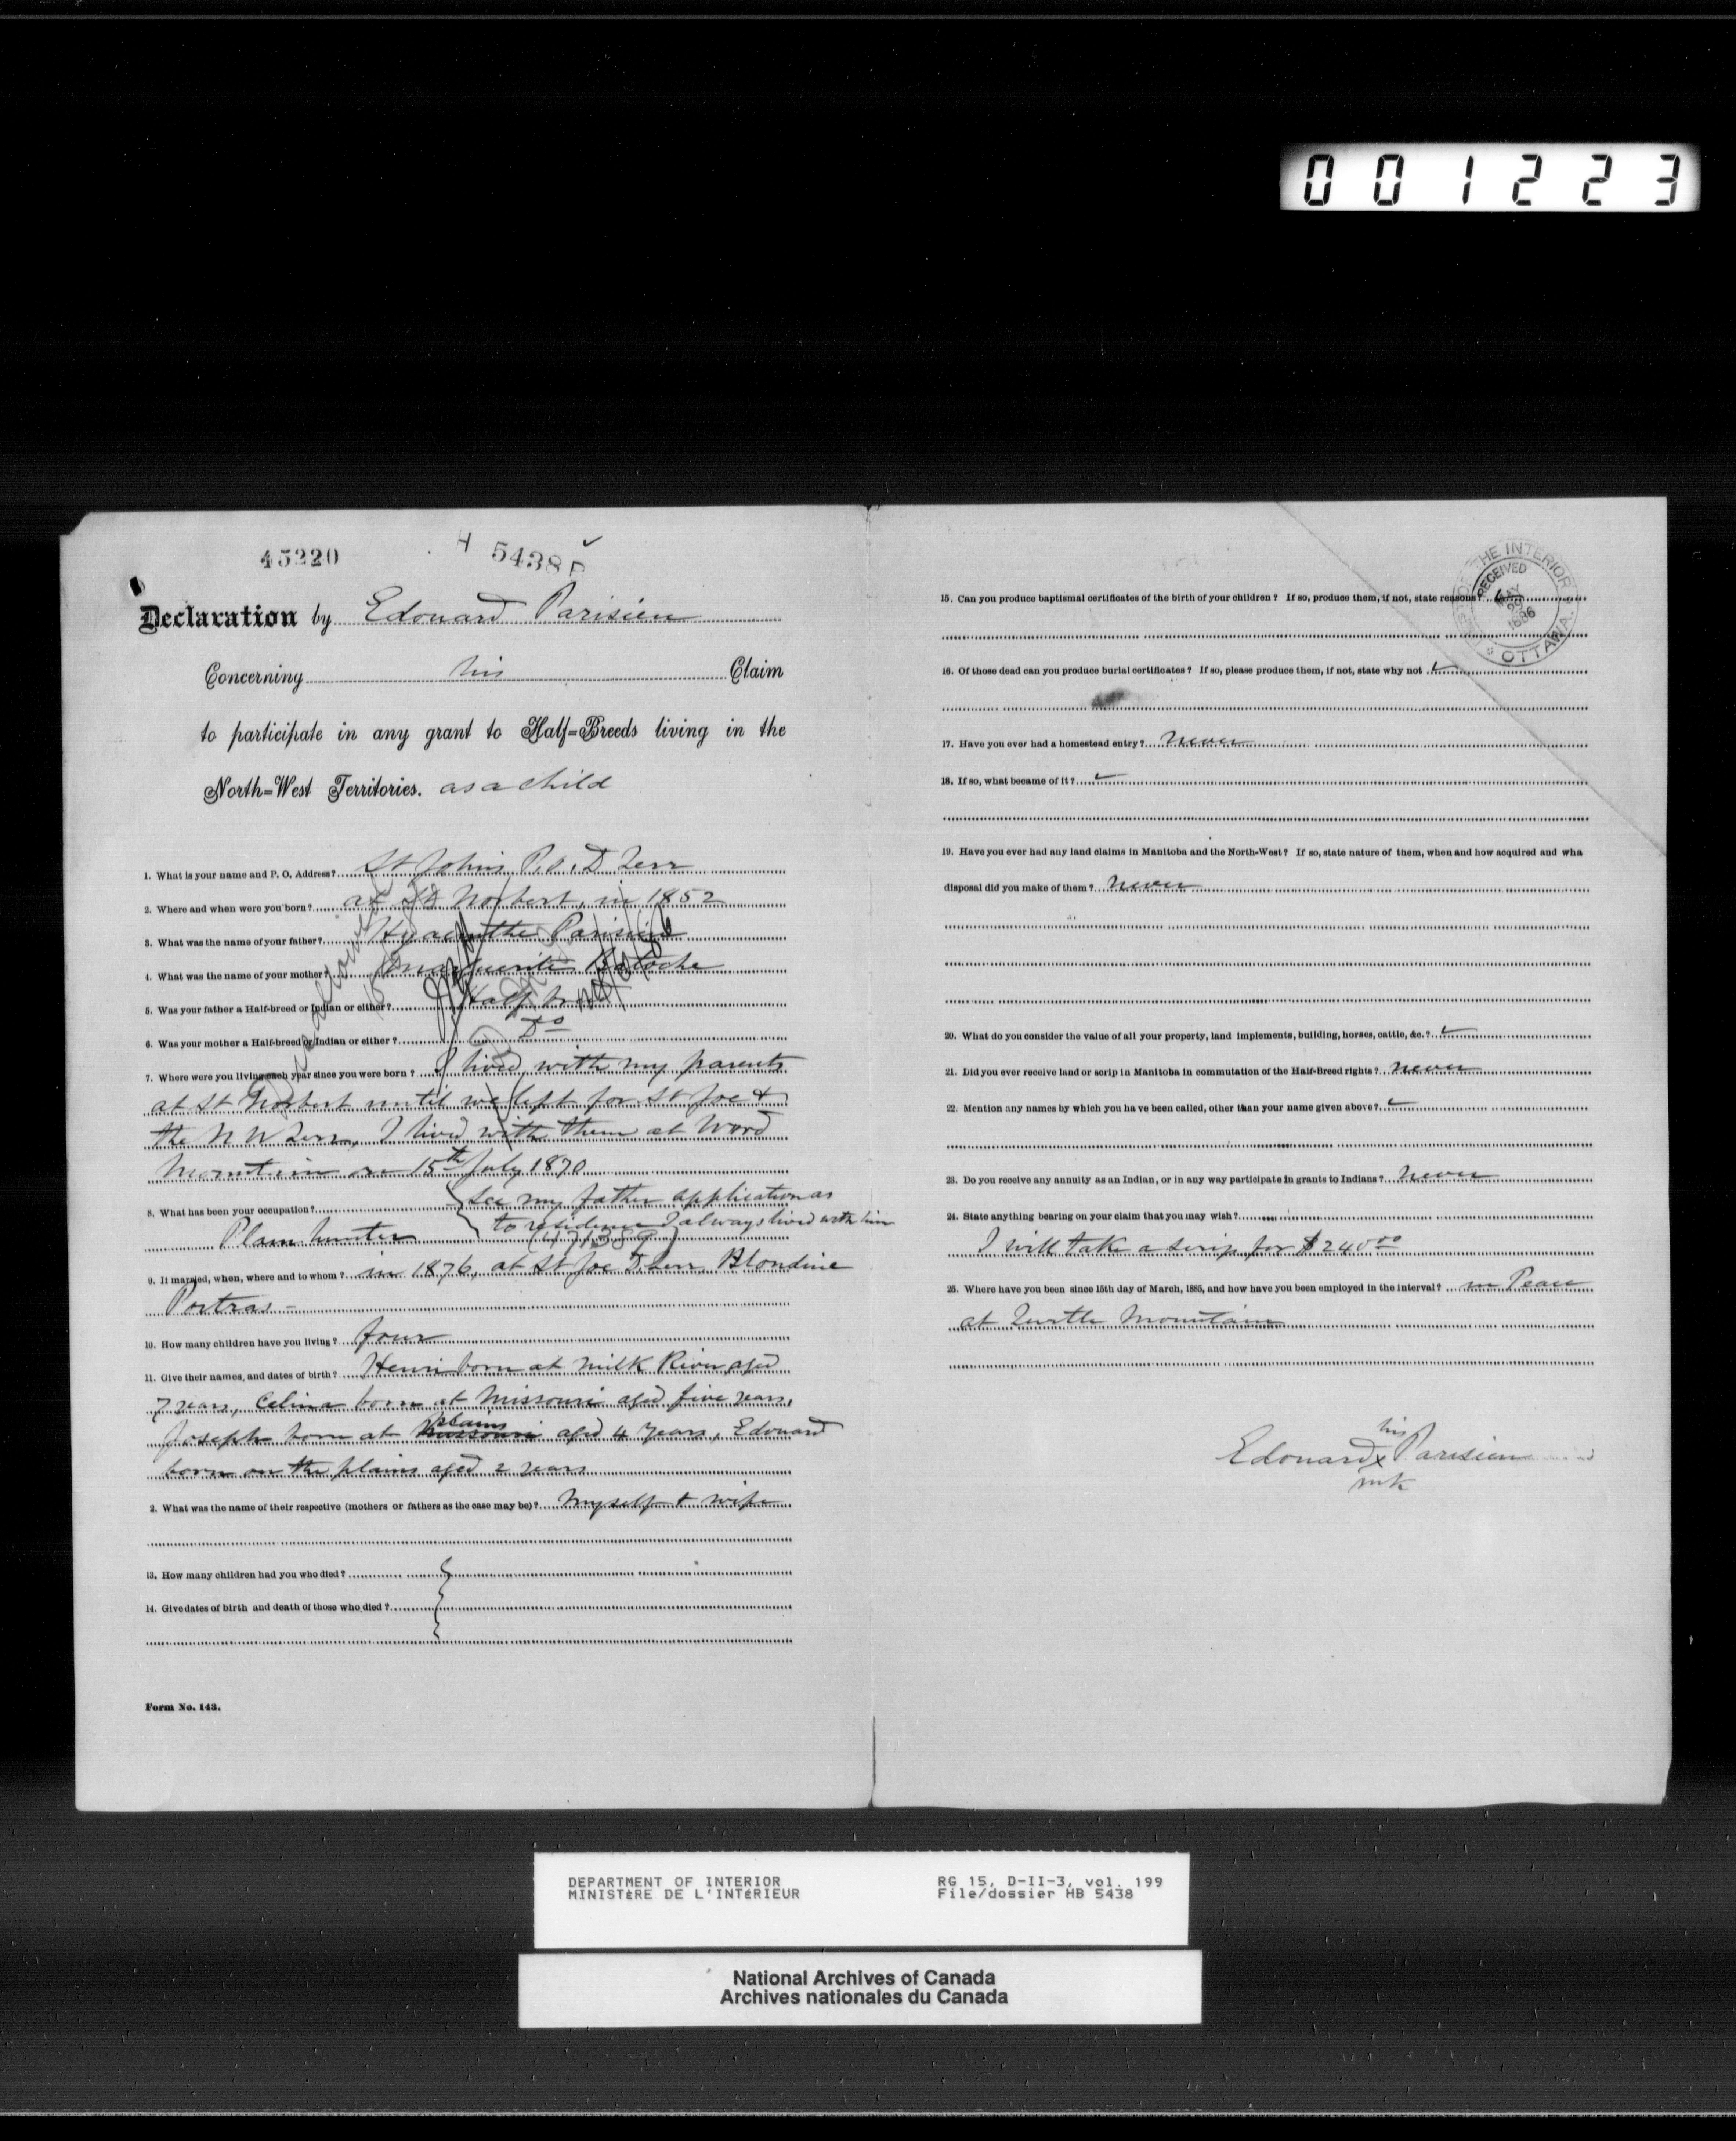 001223
45220
H 5438
Declaration by Edouard Parisien
Concerning his Claim
to participate in any grant to Half-Breeds living in the
North-West Territories. as a child
1. What is your name and P. O. Address? St Johns P.O. D Terr
2. Where and when were you born? at St Norbert, in 1852
3. What was the name of your father? Hyacinthe Parisien
4. What was the name of your mother? Marguerite
5. Was your father a Half-breed or Indian or either? Half breed
6. Was your mother a Half-breed or Indian or either? Do
7. Where were you living each year since you were born? I lived with my parents
at St Norbert until we left for St Joe &
the N W Terr, I lived with them at Wood
Mountain on 15th July 1870
8. What has been your occupation? see my father application as
to residence I always lived with him
Plain hunter
9. If married, when, where and to whom? in 1876, at St Joe D Terr Blondine
Poitras -
10. How many children have you living? four
11. Give their names, and dates of birth? Henri born at Milk River aged
7 years, Celina born at Missouri aged five years,
plains
Joseph born at Missouri aged 4 years, Edouard
born on the plains aged 2 years
2. What was the name of their respective (mothers or fathers as the case may be)? Myself & wife
13. How many children had you who died?
14. Give dates of birth and death of those who died?
Form No. 143.
DEPT OF THE INTERIOR
RECEIVED
MAY
1886
OTTAWA
15. Can you produce baptismal certificates of the birth of your children? If so, produce them, if not, state reasons?
16. Of those dead can you produce burial certificates? If so, please produce them, if not, state why not
17. Have you ever had a homestead entry? never
18. If so, what became of it?
19. Have you ever had any land claims in Manitoba and the North-West? If so, state nature of them, when and how acquired and wha
disposal did you make of them? never
20. What do you consider the value of all your property, land implements, building, horses, cattle, &c.?
21. Did you ever receive land or scrip in Manitoba in commutation of the Half-Breed rights? never
22. Mention any names by which you have been called, other than your name given above?
23. Do you receive any annuity as an Indian, or in any way participate in grants to Indians? never
24. State anything bearing on your claim that you may wish?
I will take a scrip for $240 00
25. Where have you been since 15th day of March, 1885, and how have you been employed in the interval? in Peace
at Turtle Mountain
his
Edouard x Parisien
mk
DEPARTMENT OF INTERIOR
MINISTÈRE DE L'INTÉRIEUR
RG 15, D-II-3, vol. 199
File/dossier HB 5438
National Archives of Canada
Archives nationales du Canada